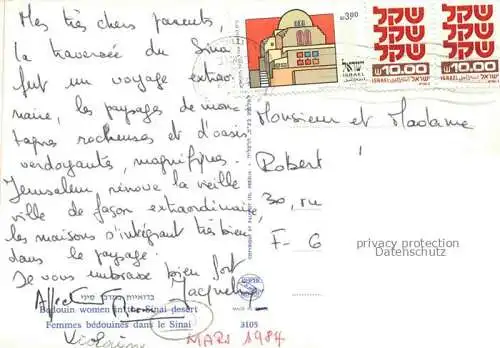 Mes très chers parents,
la traversée du Sinaï
fut un voyage extraor-
naire, les paysages de mon-
tagnes rocheuses et d'oasis
verdoyants, magnifiques.
Jerusalem, rénove la vieille
ville de façon extraordinaire,
les maisons s'intégrant très bien
dans le paysage.
Je vous embrasse bien fort
Jacqueline
בדואיות במדבר סיני
Bedouin women in the Sinai desert
Femmes bédouines dans le Sinai
3105
MARS 1984
3.00
ישראל
ISRAEL
שקל שקל
שקל שקל
שקל שקל
10.00 10.00
ISRAEL ישראל ISRAEL ישראל
Monsieur et Madame
Robert
30, ru
F-6
privacy protection
Datenschutz